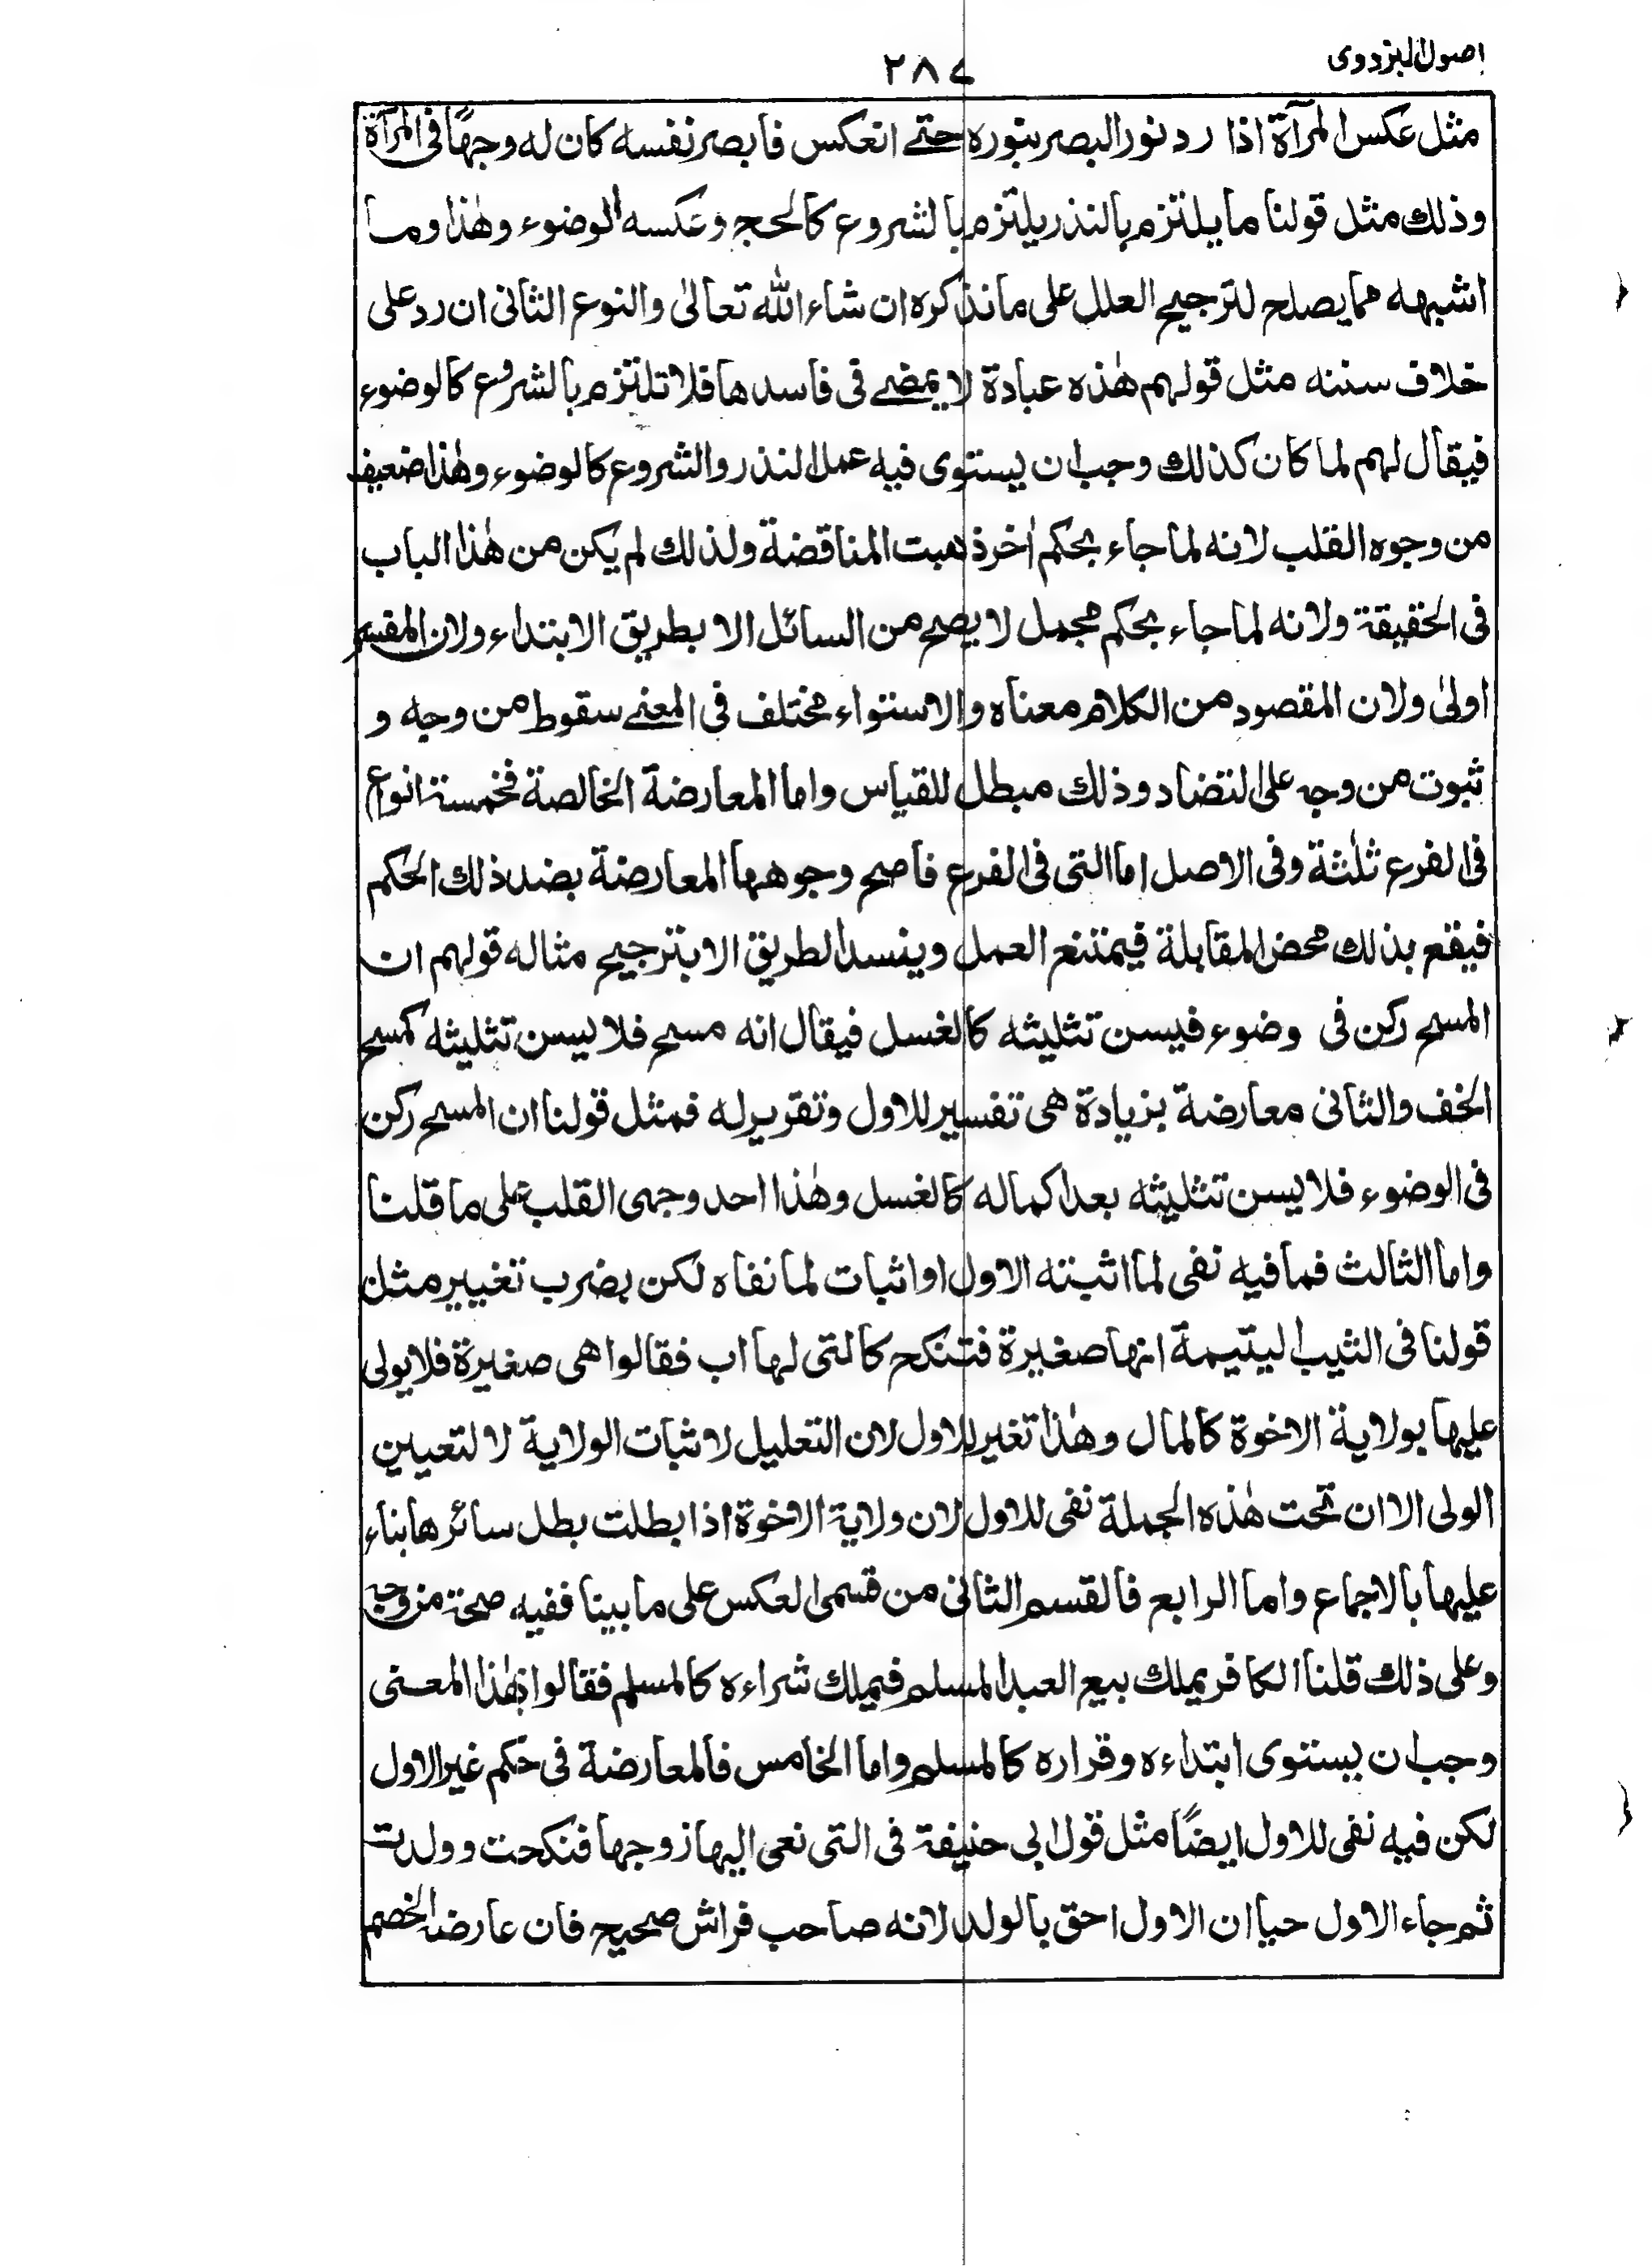 اصول البزدوى
٢٨٧
مثل عكس المرآة اذا رد نور البصر بنوره حتے انعكس فابصر نفسه كان له وجهًا فى المرآة
وذلك مثل قولنا ما يلتزم بالنذر يلتزم بالشروع كالحج وعكسه الوضوء وهٰذا وما
اشبهه مما يصلح لترجيح العلل على ما نذكره ان شاء الله تعالىٰ والنوع الثانى ان رد على
خلاف سننه مثل قولهم هٰذه عبادة لا يمضے فى فاسدها فلا تلتزم بالشروع كالوضوء
فيقال لهم لما كان كذلك وجب ان يستوى فيه عمل النذر والشروع كالوضوء وهٰذا ضعيف
من وجوه القلب لانه لما جاء بحكم اٰخر ذهبت المناقضة ولذلك لم يكن من هٰذا الباب
فى الحقيقة ولانه لما جاء بحكم مجمل لا يصح من السائل الا بطريق الابتداء ولان المفسر
اولىٰ ولان المقصود من الكلام معناه والاستواء مختلف فى المعنے سقوط من وجه و
ثبوت من وجه على التضاد وذلك مبطل للقياس واما المعارضة الخالصة فخمسة انواع
فى الفرع ثلٰثة وفى الاصل اما التى فى الفرع فاصح وجوهها المعارضة بضد ذلك الحكم
فيقع بذلك محض المقابلة فيمتنع العمل وينسد الطريق الا بترجيح مثاله قولهم ان
المسح ركن فى وضوء فيسن تثليثه كالغسل فيقال انه مسح فلا يسن تثليثه كمسح
الخف والثانى معارضة بزيادة هى تفسير للاول وتقرير له فمثل قولنا ان المسح ركن
فى الوضوء فلا يسن تثليثه بعد اكماله كالغسل وهٰذا احد وجهى القلب على ما قلنا
واما الثالث فما فيه نفى لما اثبته الاول او اثبات لما نفاه لكن بضرب تغيير مثل
قولنا فى الثيب اليتيمة انها صغيرة فتنكح كالتى لها اب فقالوا هى صغيرة فلا يولى
عليها بولاية الاخوة كالمال وهٰذا تغير للاول لان التعليل لاثبات الولاية لا لتعيين
الولى الا ان تحت هٰذه الجملة نفى للاول لان ولاية الاخوة اذا بطلت بطل سائرها بناء
عليها بالاجماع واما الرابع فالقسم الثانى من قسمى العكس على ما بينا ففيه صحة من وجه
وعلى ذلك قلنا الكافر يملك بيع العبد المسلم فيملك شراءه كالمسلم فقالوا بهٰذا المعنى
وجب ان يستوى ابتداءه وقراره كالمسلم واما الخامس فالمعارضة فى حكم غير الاول
لكن فيه نفى للاول ايضًا مثل قول ابى حنيفة فى التى نعى اليها زوجها فنكحت وولدت
ثم جاء الاول حيا ان الاول احق بالولد لانه صاحب فراش صحيح فان عارضه الخصم